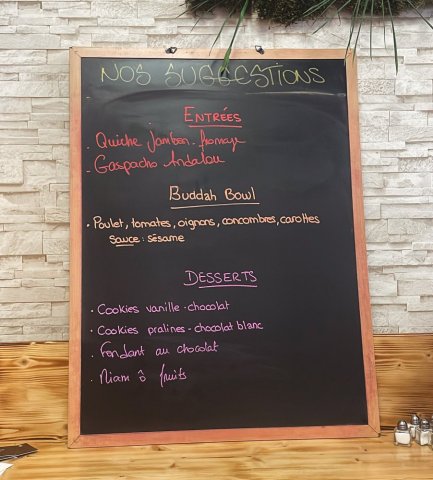 NOS SUGGESTIONS
ENTRÉES
. Quiche Jambon - fromage
. Gaspacho Andalou
BUDDAH BOWL
. Poulet, tomates, oignons, concombres, carottes
Sauce : sésame
DESSERTS
. Cookies vanille - chocolat
. Cookies pralines - chocolat blanc
. Fondant au chocolat
. Miam ô fruits